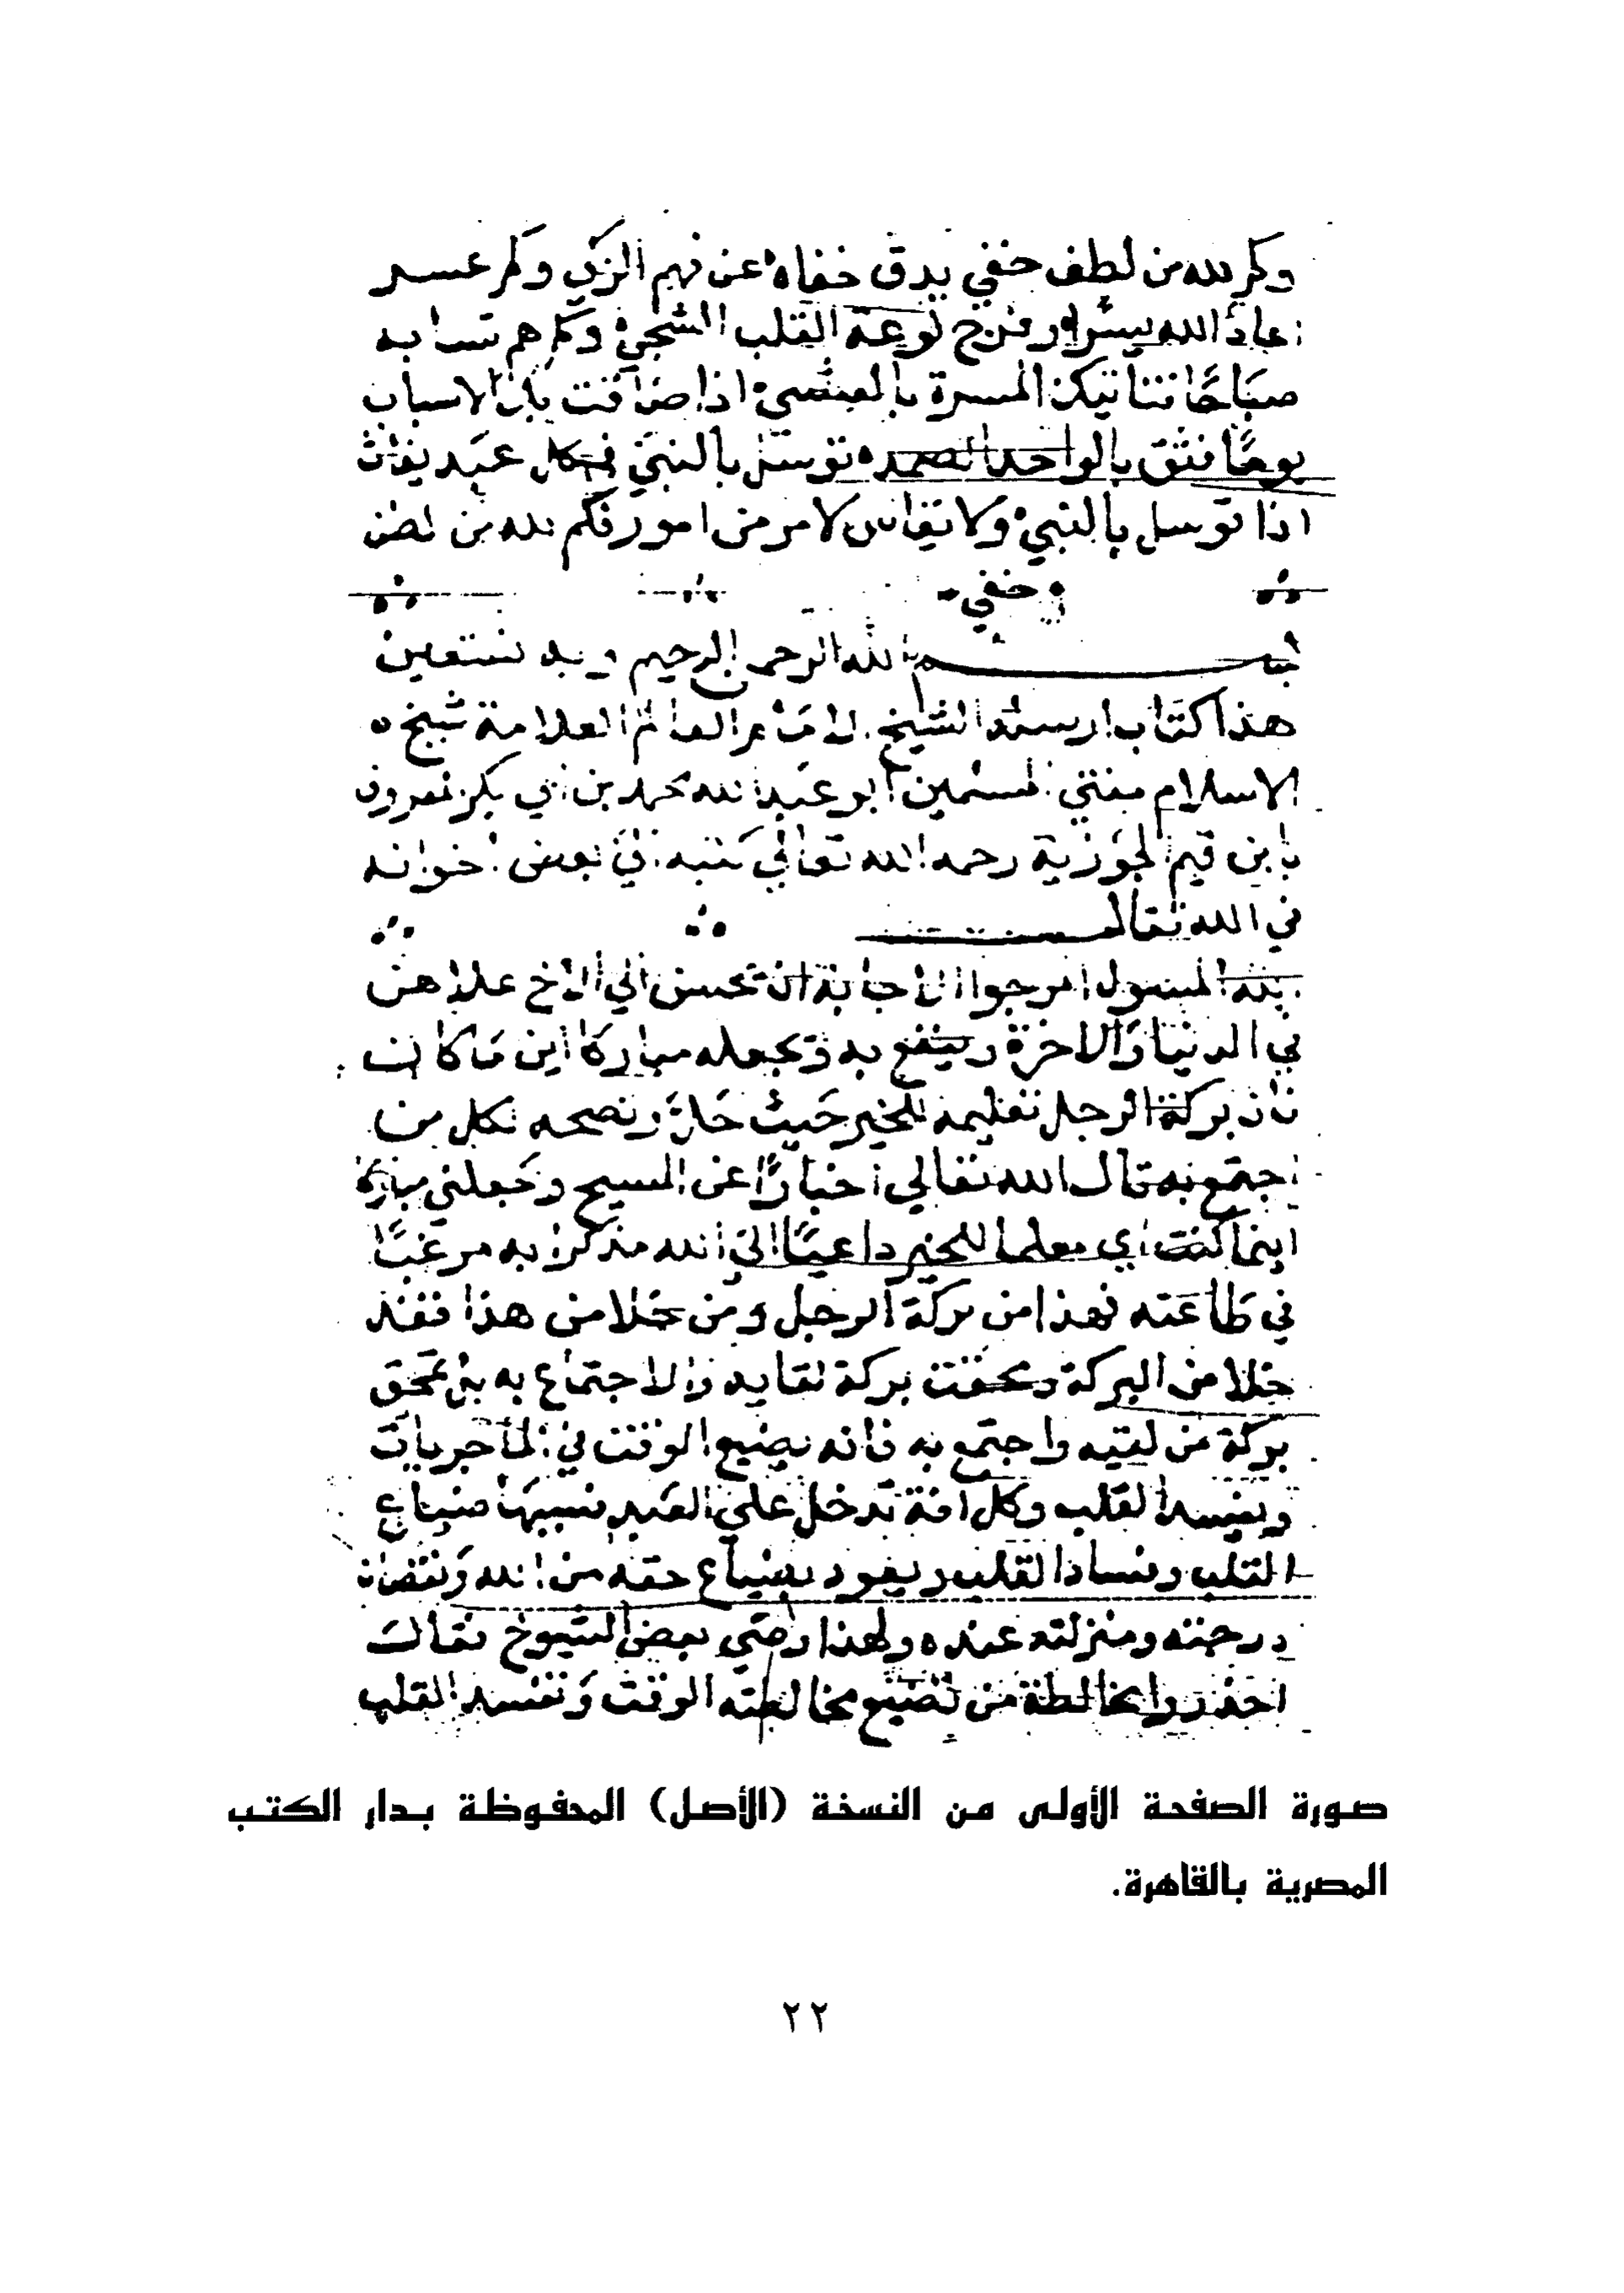 وكم لله من لطف خفي يدق خفاه عن فهم الزكي وكم عسر
اعاد الله يسرا وفرج لوعة القلب الشجي وكم هم تساء به
صباحا فتاتيك المسرة بالعشي اذا ضاقت بك الاسباب
يوما فثق بالواحد الصمد توسل بالنبي فكل عبد يغاث
اذا توسل بالنبي ولا تيأس لامر من امور فكم لله من لطف
خفي
بسم الله الرحمن الرحيم وبه نستعين
هذا كتاب ارسله الشيخ الامام العالم العلامة شيخ
الاسلام مفتي المسلمين ابو عبد الله محمد بن ابي بكر المعروف
بابن قيم الجوزية رحمه الله تعالي كتبه الي بعض اخوانه
في الله تعالى
الله المسول المرجوا الاجابة ان يحسن الي الاخ علا
في الدنيا والاخرة وينفع به ويجعله مباركا اين ما كان
فان بركة الرجل تعليمه للخير حيث حل ونصحه لكل من
اجتمع به قال الله تعالي اخبارا عن المسيح وجعلني مباركا
اينما كنت اي معلما للخير داعيا الي الله مذكرا به مرغبا
في طاعته فهذا من بركة الرجل ومن خلا من هذا فقد
خلا من البركة ومحقت بركة لقايه والاجتماع به بل تمحق
بركة من لقيه واجتمع به فانه يضيع الوقت في الماجريات
ويفسد القلب وكل افة تدخل على العبد فسببها ضياع
القلب وفساد القلب ويعود بضياع حقه من الله ونقصان
درجته ومنزلته عنده ولهذا وصي بعض الشيوخ فقال
احذروا مخالطة من تضيع مخالطته الوقت وتفسد القلب
صورة الصفحة الأولى من النسخة (الأصل) المحفوظة بدار الكتب
المصرية بالقاهرة.
٢٢